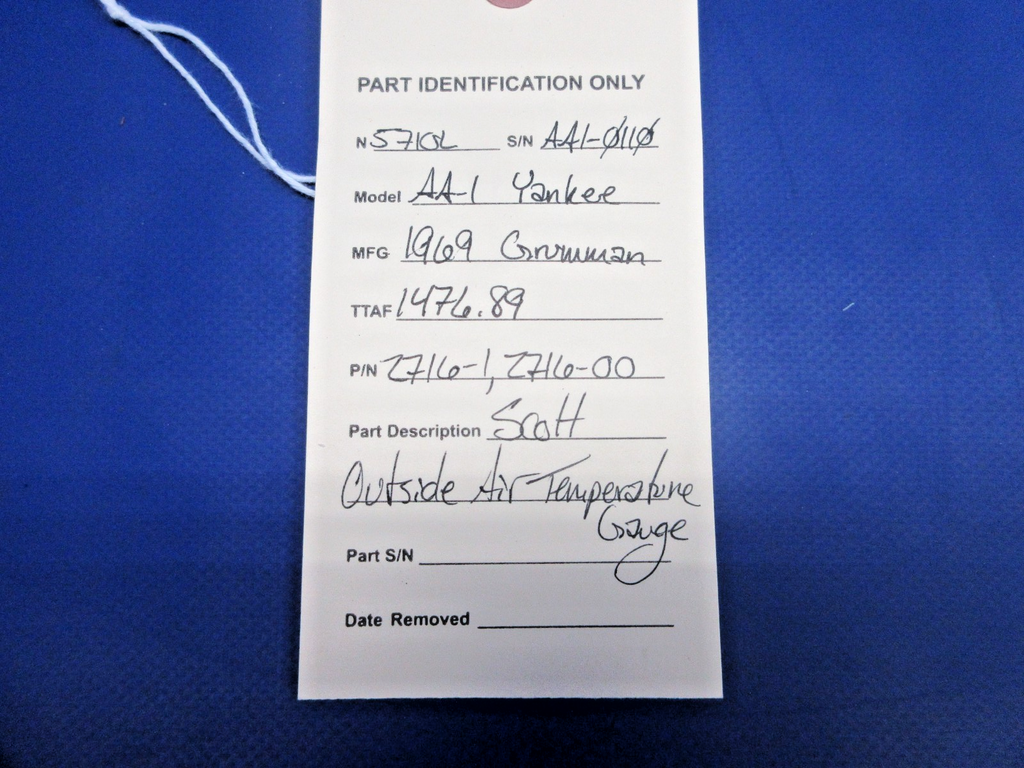 PART IDENTIFICATION ONLY
N 5710L S/N AA1-0110
Model AA-1 Yankee
MFG 1969 Grumman
TTAF 1476.89
P/N 2716-1, 2716-00
Part Description Scott
Outside Air Temperature
Gauge
Part S/N
Date Removed